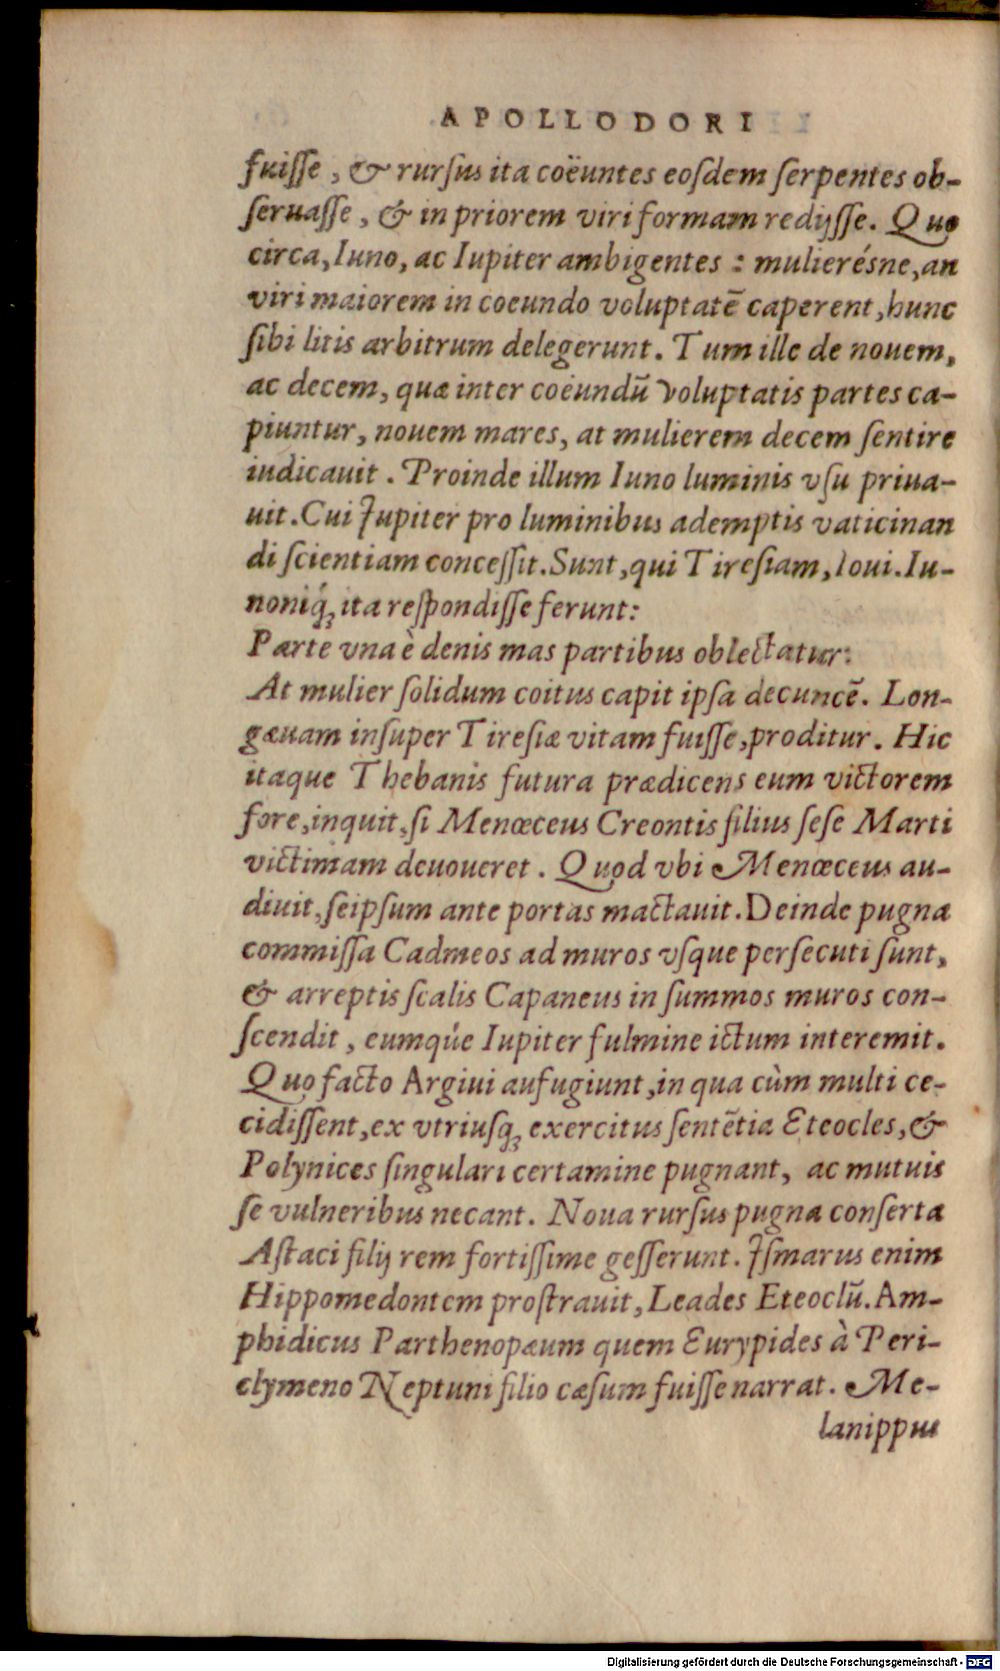 APOLLODORI
fuiſſe, & rurſus ita coëuntes eoſdem ſerpentes ob-
ſeruaſſe, & in priorem viri formam redijſſe. Quo
circa, Iuno, ac Iupiter ambigentes : mulierésne, an
viri maiorem in coeundo voluptatē caperent, hunc
ſibi litis arbitrum delegerunt. Tum ille de nouem,
ac decem, quæ inter coëundū voluptatis partes ca-
piuntur, nouem mares, at mulierem decem ſentire
iudicauit. Proinde illum Iuno luminis vſu priua-
uit. Cui Iupiter pro luminibus ademptis vaticinan
di ſcientiam conceſſit. Sunt, qui Tireſiam, Ioui. Iu-
noniq́; ita reſpondiſſe ferunt:
Parte vna è denis mas partibus oblectatur:
At mulier ſolidum coitus capit ipſa decuncē. Lon-
gæuam inſuper Tireſiæ vitam fuiſſe, proditur. Hic
itaque Thebanis futura prædicens eum victorem
fore, inquit, ſi Menœceus Creontis filius ſeſe Marti
victimam deuoueret. Quod vbi Menœceus au-
diuit, ſeipſum ante portas mactauit. Deinde pugna
commiſſa Cadmeos ad muros vſque perſecuti ſunt,
& arreptis ſcalis Capaneus in ſummos muros con-
ſcendit, eumqúe Iupiter fulmine ictum interemit.
Quo facto Argiui aufugiunt, in qua cùm multi ce-
cidiſſent, ex vtriuſq; exercitus ſentētia Eteocles, &
Polynices ſingulari certamine pugnant, ac mutuis
ſe vulneribus necant. Noua rurſus pugna conſerta
Aſtaci filij rem fortiſſime geſſerunt. Iſmarus enim
Hippomedontem proſtrauit, Leades Eteoclū. Am-
phidicus Parthenopæum quem Eurypides à Peri-
clymeno Neptuni filio cæſum fuiſſe narrat. Me-
lanippus
Digitalisierung gefördert durch die Deutsche Forschungsgemeinschaft - DFG